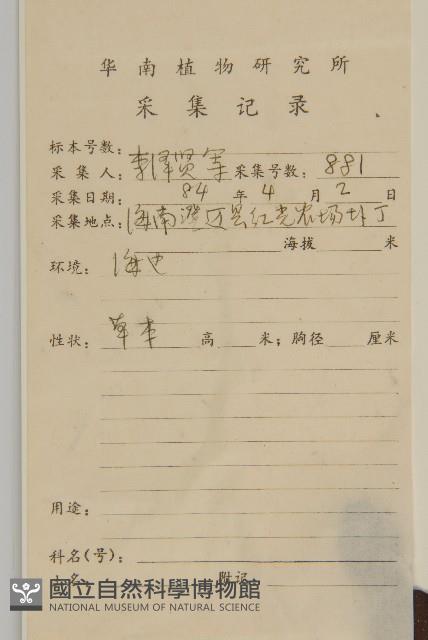 华南植物研究所
采集记录
标本号数:
采集人: 李泽贤等 采集号数: 881
采集日期: 84 年 4 月 2 日
采集地点: 海南澄迈县红光农场
海拔 米
环境: 海边
性状: 草本 高 米; 胸径 厘米
用途:
科名(号):
附记
國立自然科學博物館
NATIONAL MUSEUM OF NATURAL SCIENCE